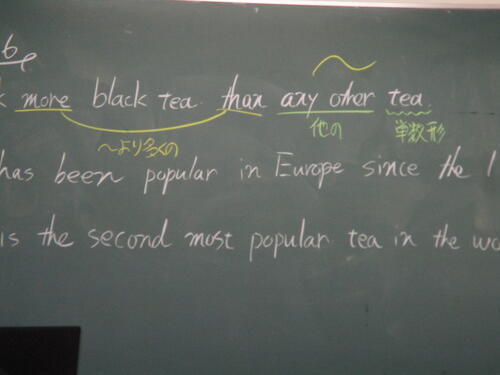 6
k more black tea than any other tea.
〜より多くの 他の 単数形
has been popular in Europe since the 1
is the second most popular tea in the wo